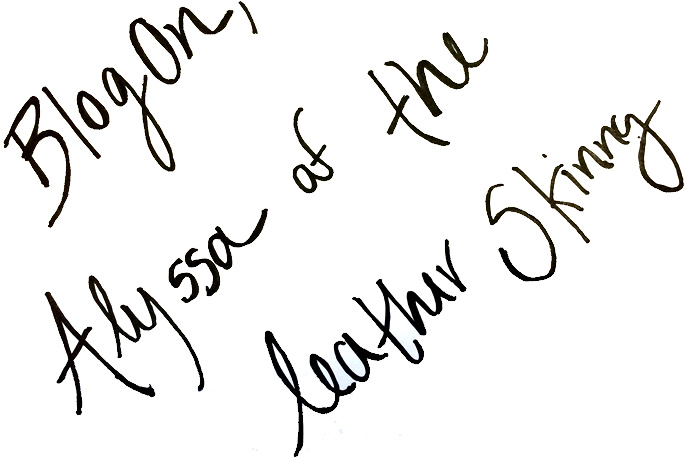 Blog On,
Alyssa at the
leather Skinny